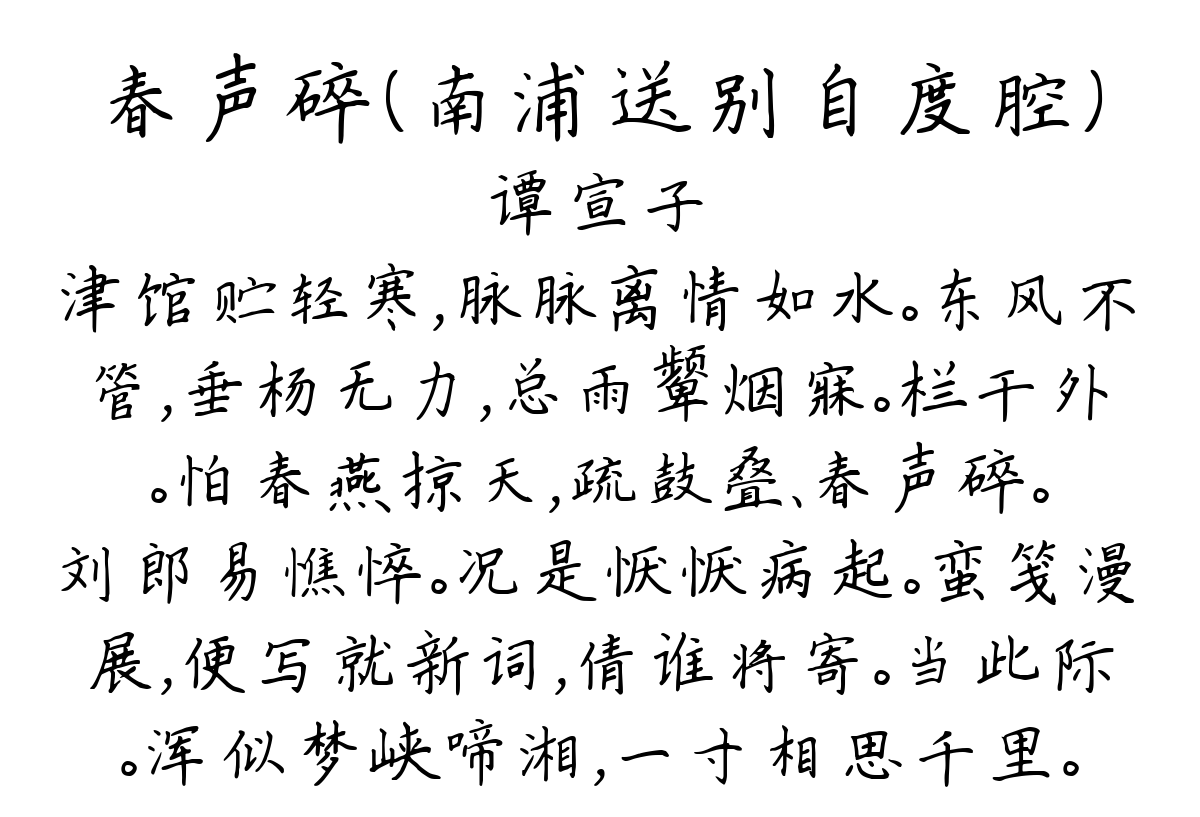 春声碎(南浦送别自度腔)
谭宣子
津馆贮轻寒,脉脉离情如水。东风不
管,垂杨无力,总雨颦烟寐。栏干外
。怕春燕掠天,疏鼓叠、春声碎。
刘郎易憔悴。况是恹恹病起。蛮笺漫
展,便写就新词,倩谁将寄。当此际
。浑似梦峡啼湘,一寸相思千里。